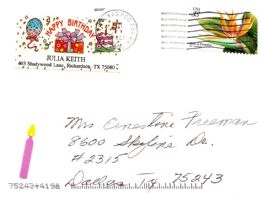 HAPPY BIRTHDAY
JULIA KEITH
403 Shadywood Lane, Richardson, TX 75080
USA
Mrs Ernestine Freeman
8600 Skyline Dr.
#2315
Dallas Tx 75243
75243+4198